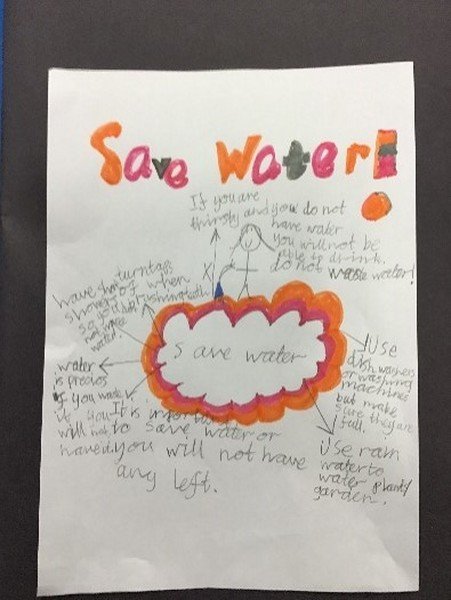 Save Water!
If you are
thirsty and you do not
have water
you will not be
able to drink.
do not waste water!
turn taps
off when
brushing teeth
have short
showers
so you do
not waste
water!
Save water
water
is precios
if you waste
it you
will not
have
It is important
to save water or
you will not have
any left.
Use
dish washers
or washing
machines
but make
sure they are
full.
Use rain
water to
water plants/
garden.